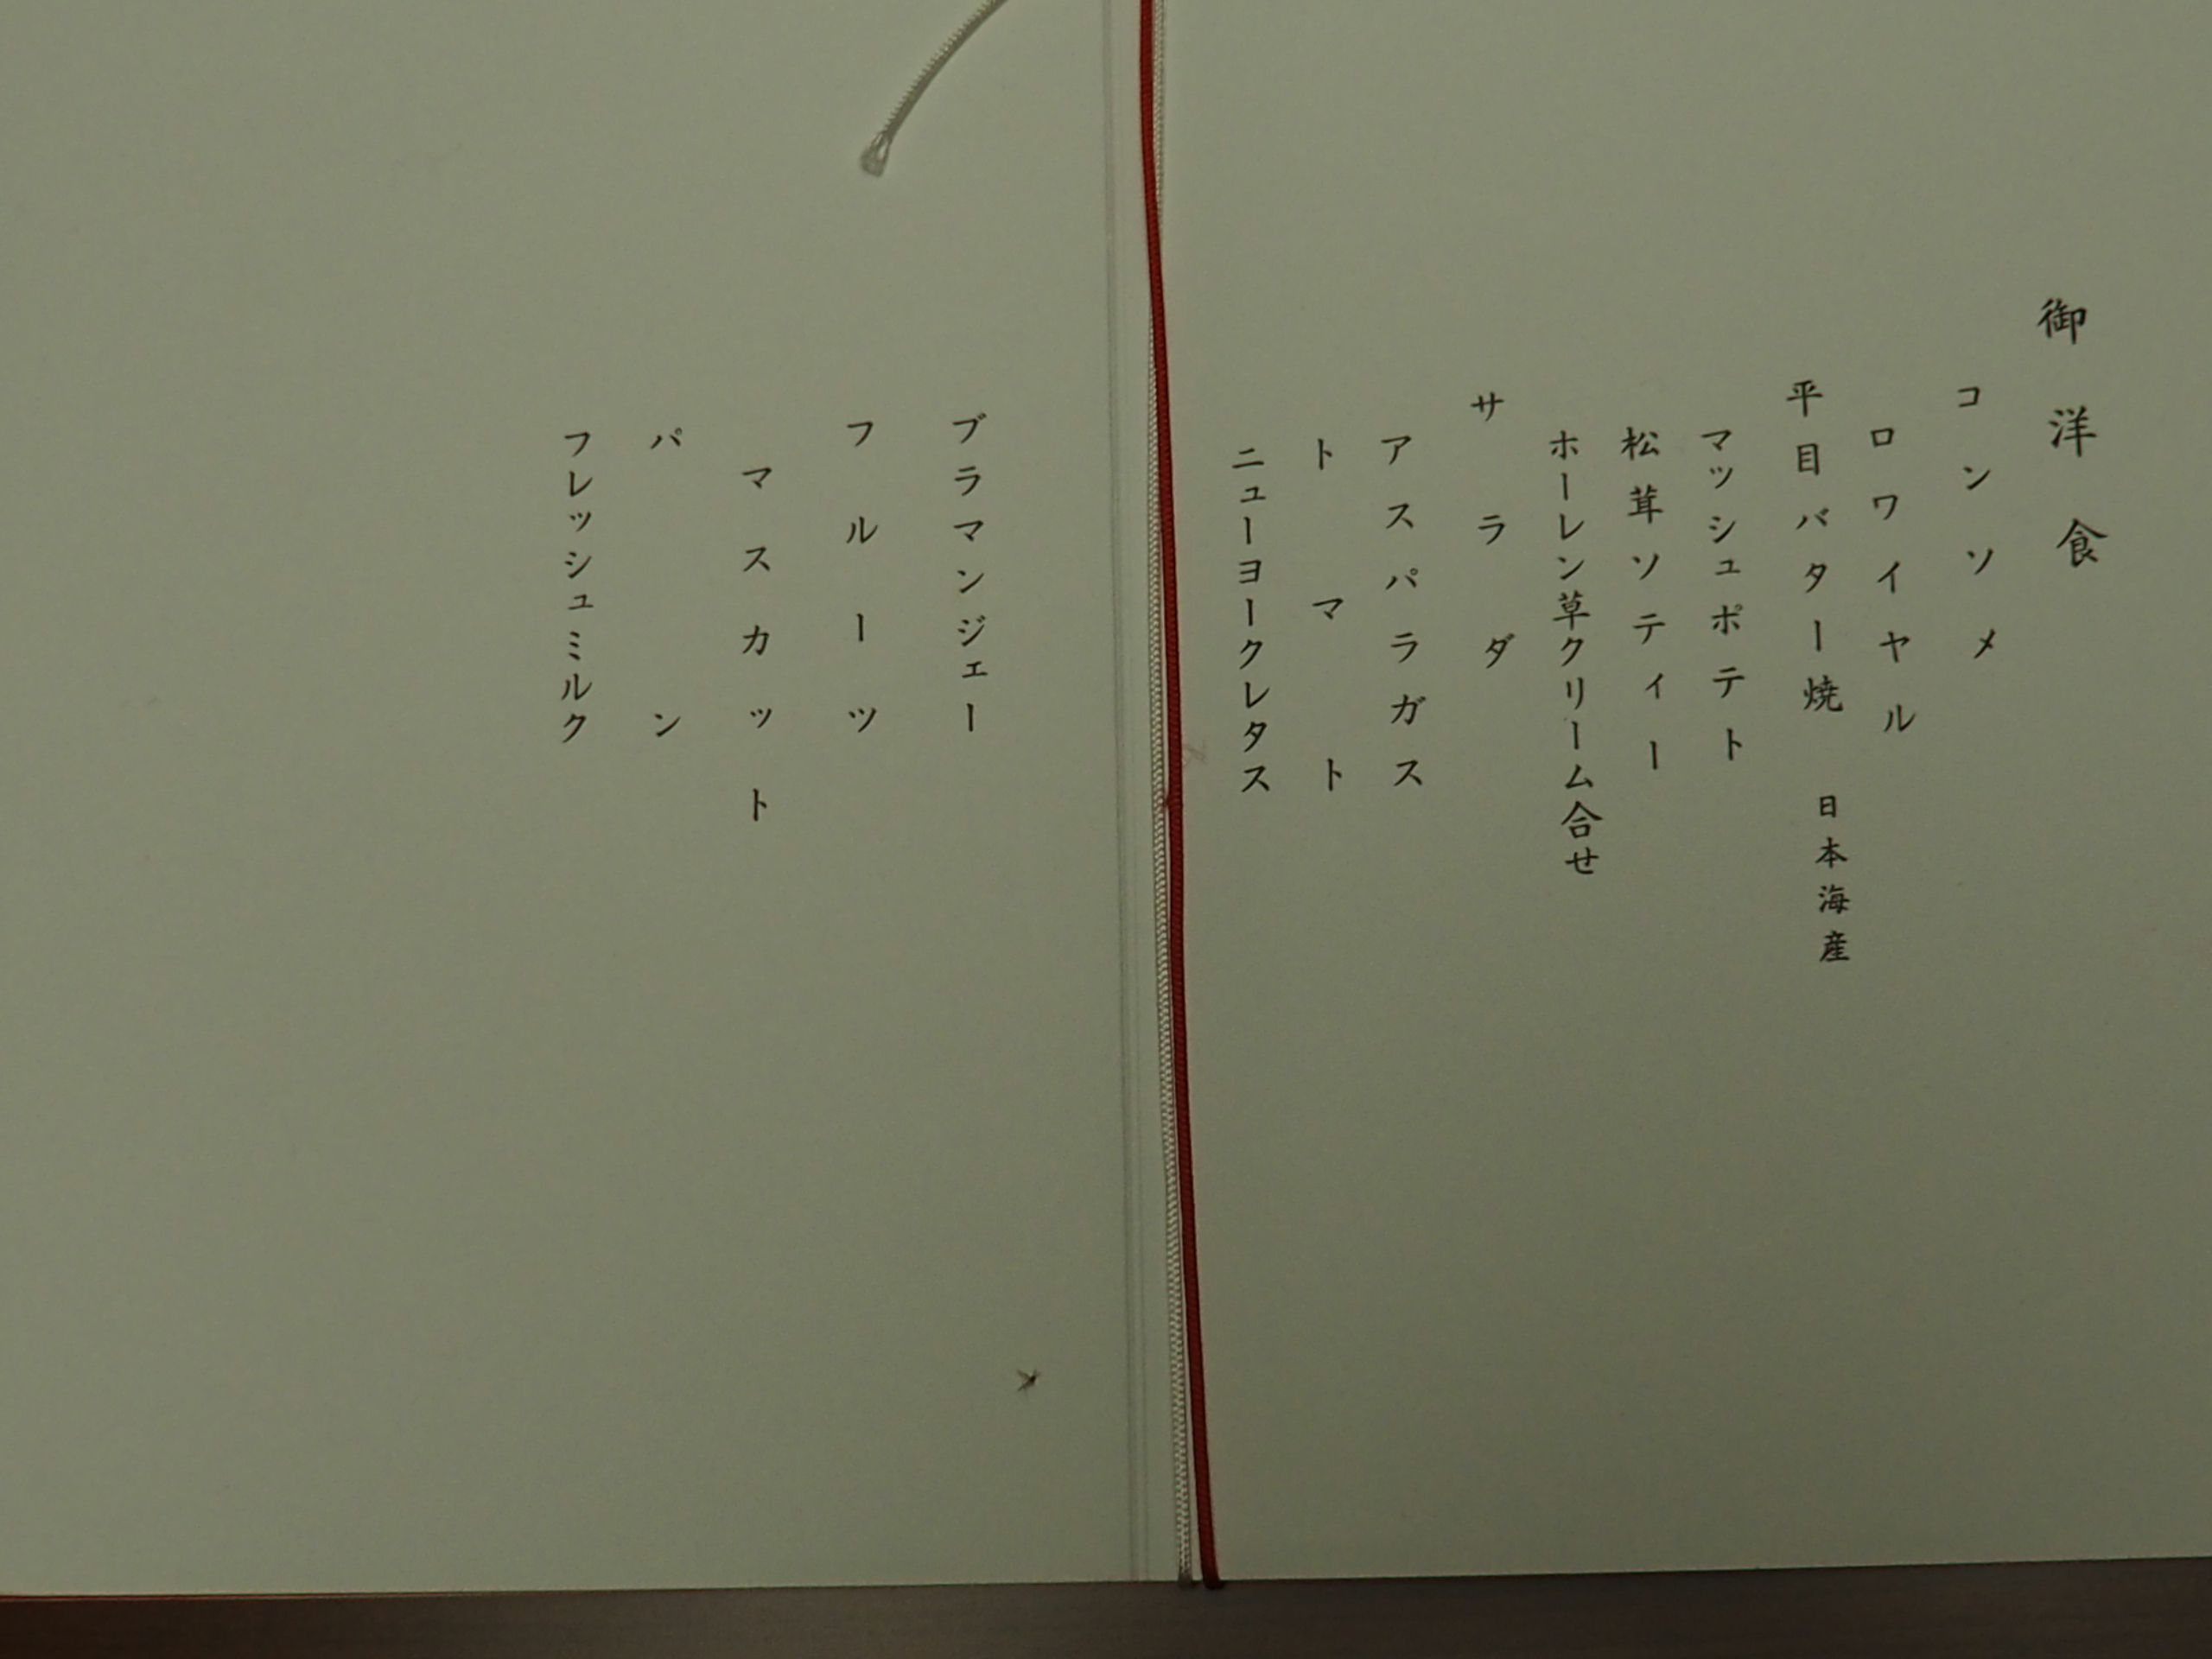 御洋食
コンソメ
ロワイヤル
平目バター焼 日本海産
マッシュポテト
松茸ソティー
ホーレン草クリーム合せ
サラダ
アスパラガス
トマト
ニューヨークレタス
ブラマンジェー
フルーツ
マスカット
パン
フレッシュミルク